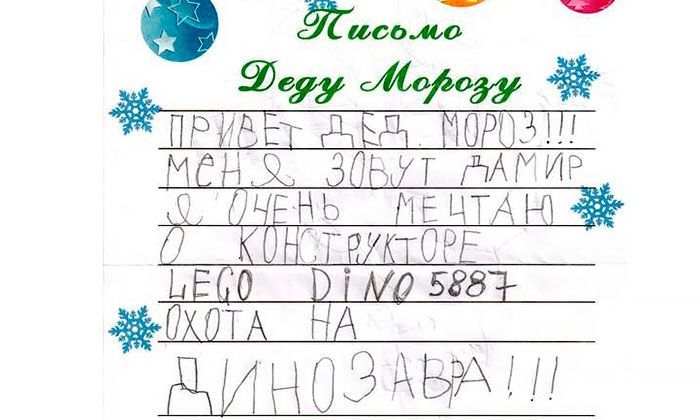 Письмо
Деду Морозу
ПРИВЕТ ДЕД МОРОЗ!!!
МЕНЯ ЗОВУТ ДАМИР
Я ОЧЕНЬ МЕЧТАЮ
О КОНСТРУКТОРЕ
LEGO DiNO 5887
ОХОТА НА
ДИНОЗАВРА!!!